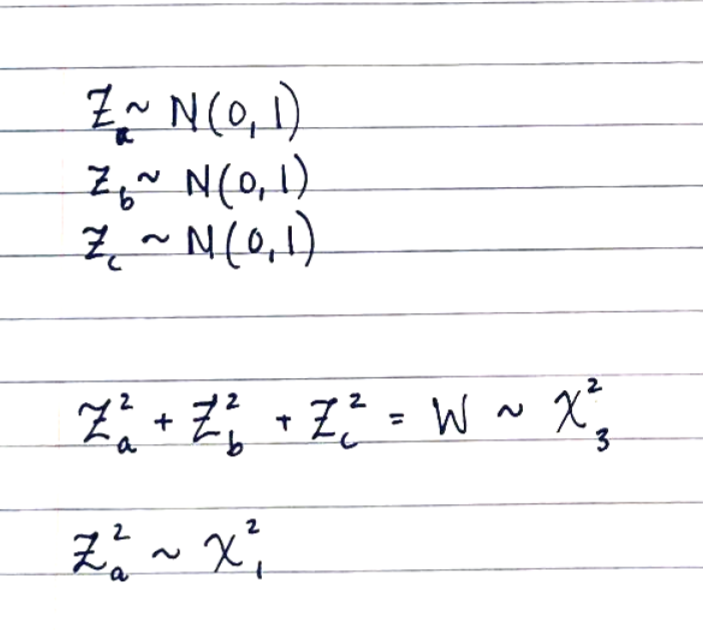 Z_a ~ N(0,1)
Z_b ~ N(0,1)
Z_c ~ N(0,1)
Z_a^2 + Z_b^2 + Z_c^2 = W ~ χ^2_3
Z_a^2 ~ χ^2_1